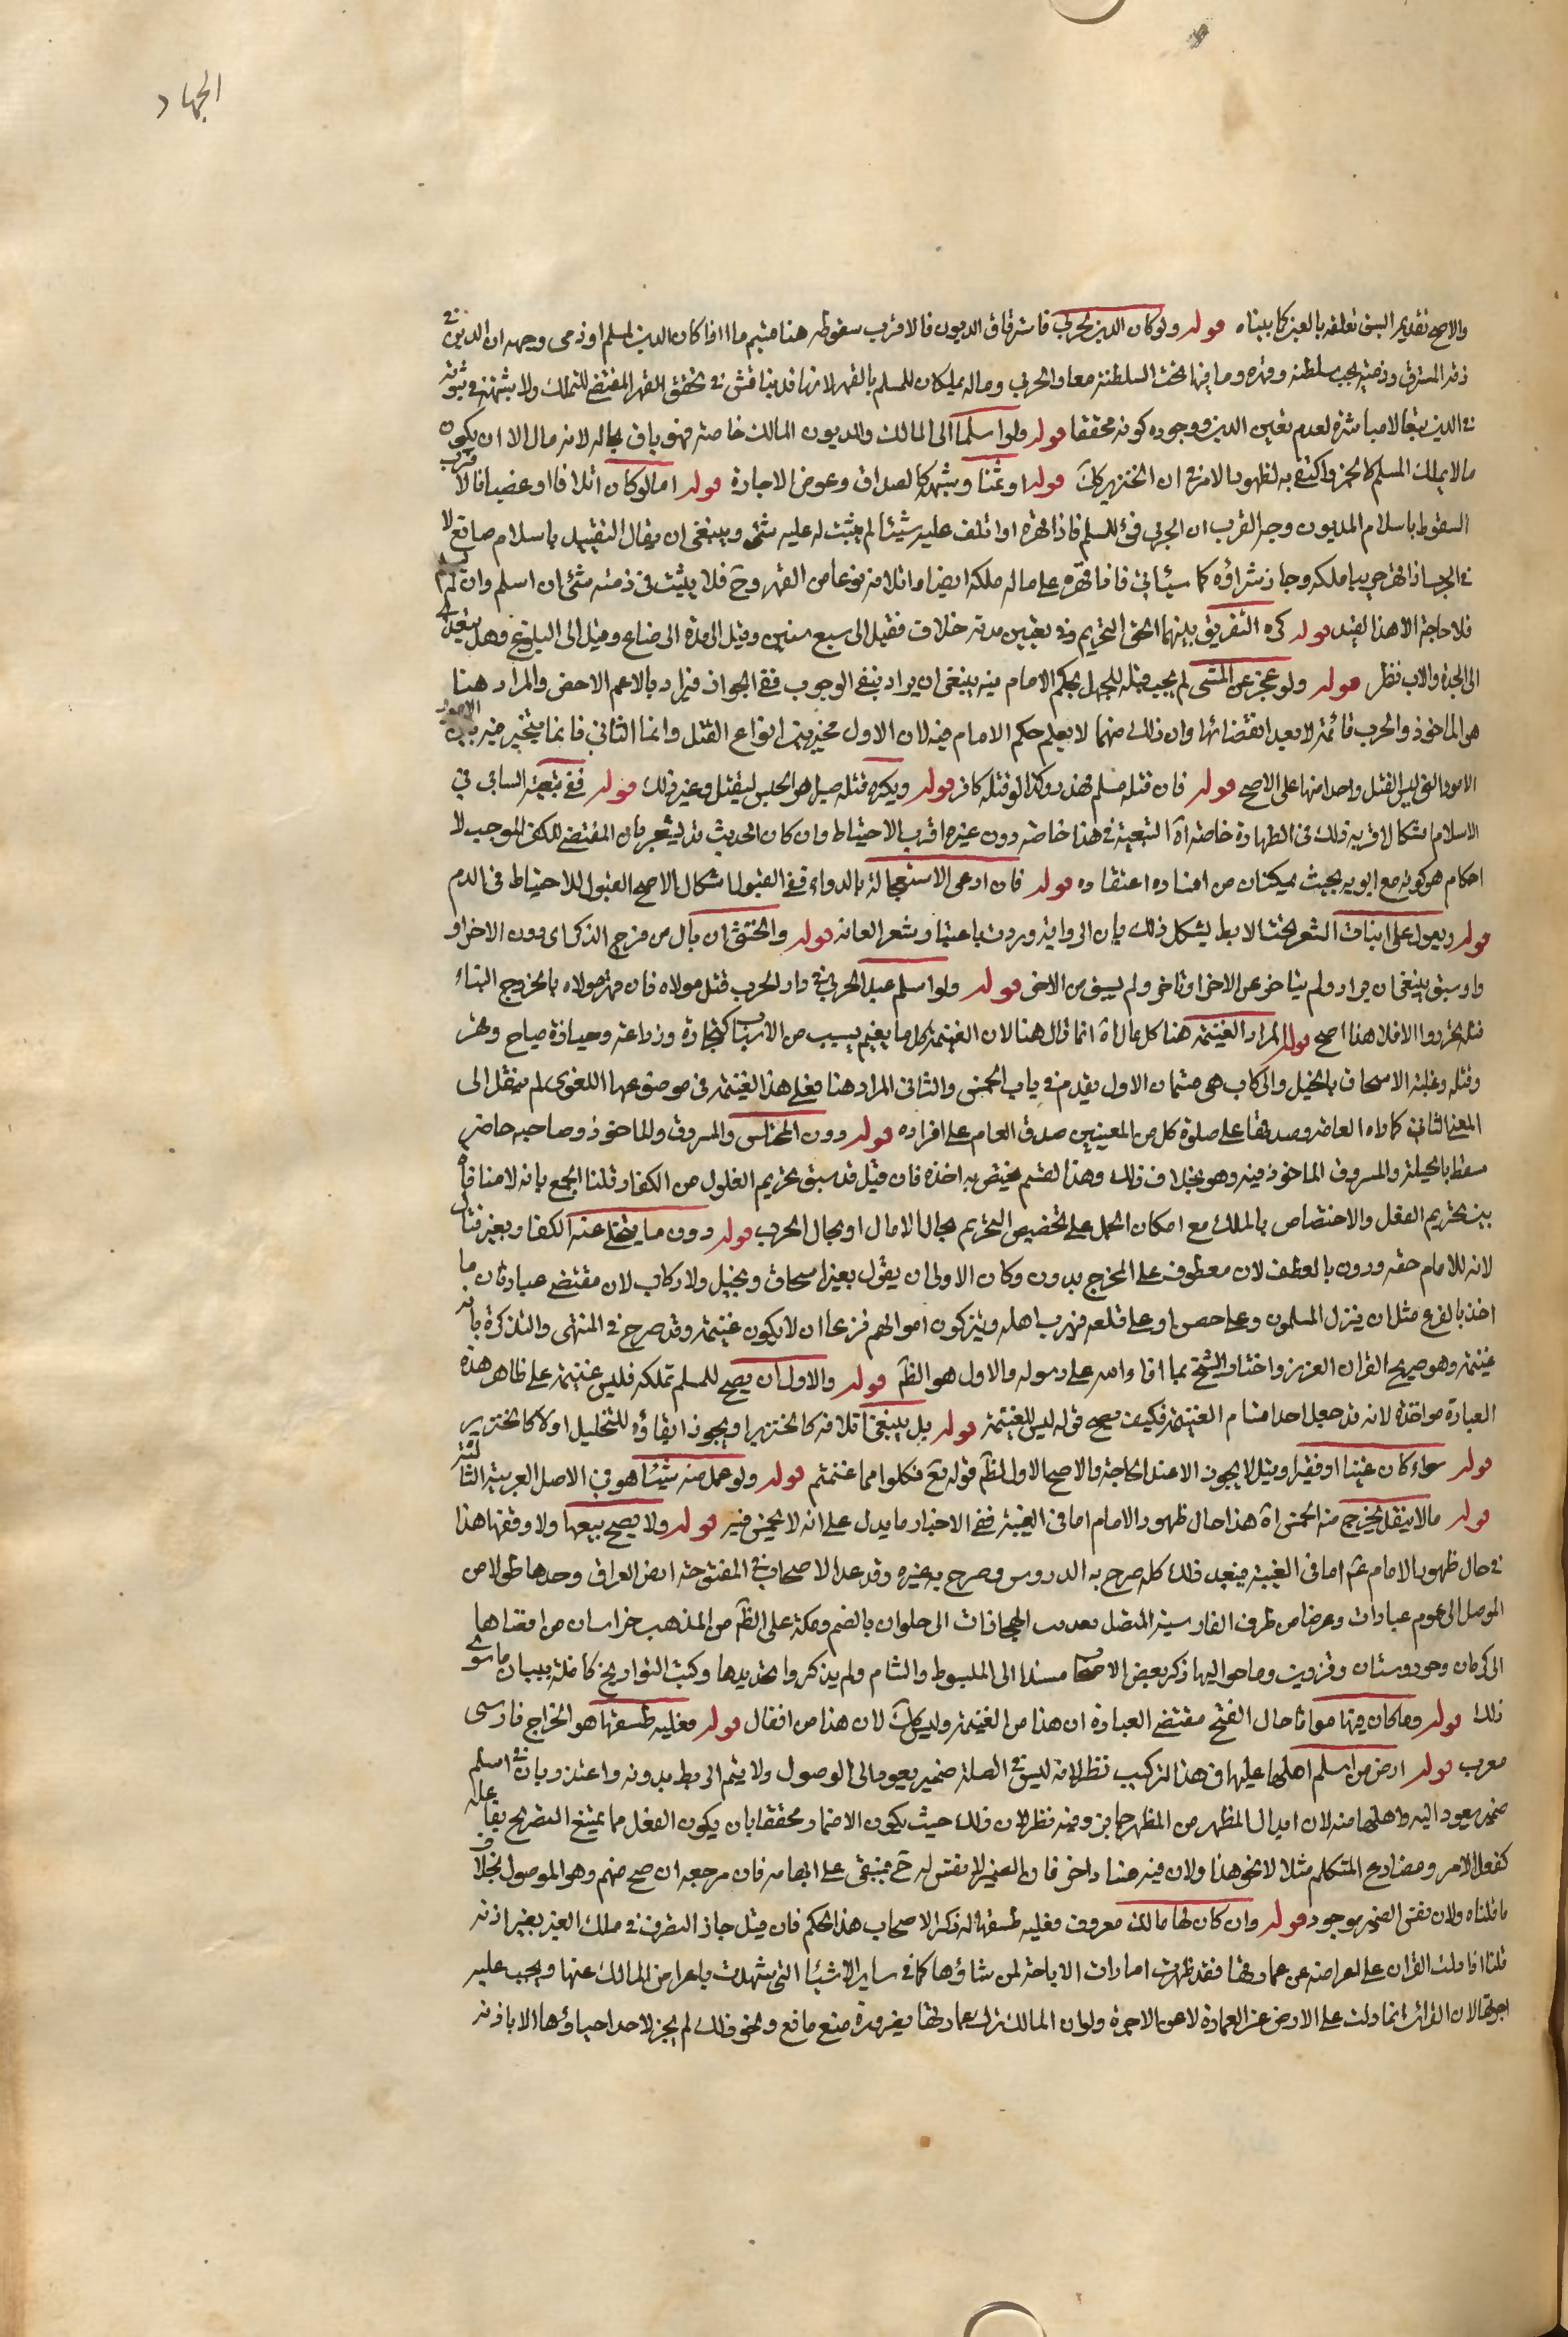 الجهاد
والاصح تقديم السبق تعلقه بالعين كما بيناه قوله ولو كان الدين لحربي فاسترقاق المديون فالاقرب سقوطه هنا فيتم ما اذا كان الدين لمسلم او ذمى وجهه ان الدين في
ذمة المسترق وذمته تحت سلطنه وقهره وما فيها تحت السلطنة معا والحربي وماله يملكان للمسلم بالقهر لانها قد يناقش في تحقق القهر المقتضي للتملك ولا شبهة في ثبوته
في الدين تبعا لا مباشرة لعدم تعين الدين ووجوده كونه محققا قوله ولو اسلما الى المالك والمديون المالك خاصة فهو باق بحاله لانه مال الا ان يكون
مالا يملك المسلم كالخمر واكتفى به لظهور الامر في ان الخنزير كك قوله او ثمنا وشبهه كالصداق وعوض الاجارة قوله اما لو كان اتلافا او غصبا فالاقرب
السقوط باسلام المديون وجه القرب ان الحربي فئ للمسلم فاذا قهره او اتلف عليه شيئا لم يثبت له عليه شئ وينبغي ان يقال التقييد باسلام صانع لا
في الحربي اذا قهر حربيا ملكه وجاز شراؤه كما سيأتي فاذا قهره على ماله ملكه ايضا واتلافه نوعا من القهر وح فلا يثبت في ذمته شئ ان اسلم وان لم
فلا حاجة الا هذا القيد قوله كره التفريق بينهما الحق التحريم وفي تعيين مدته خلاف فقيل الى سبع سنين وقيل الى مدة الرضاع وقيل الى البلوغ وهل يتعدى
الى الجدة والاب نظر قوله ولو عجز عن المشى لم يجب قتله للجهل بحكم الامام فيه ينبغي ان يراد بنفي الوجوب نفي الجواز فيراد بالاعم الاخص والمراد هنا
هو المأخوذ والحرب قائمة لا بعد انقضائها وان ذلك منهما لا يعلم حكم الامام فيه لان الاول مخير بين انواع القتل وانما الثاني فانما يتخير فيه بين الامور
الامور التي ليس القتل واحدا منها على الاصح قوله فان قتله مسلم فهدر وكذا لو قتله كافر قوله ويكره قتله صبرا هو الحبس ليقتل وغير ذلك قوله ففي تبعية السابي في
الاسلام اشكال اقربه ذلك في الطهارة خاصة اه التبعية في هذا خاصة دون غيره اقرب الاحتياط وان كان الحديث قد يشعر بان المقتضي للكفر الموجب لا
احكام هو كونه مع ابويه بحيث يمكنان من افساده اعتقاده قوله فان ادعى الاستعجال بالدواء ففي القبول اشكال الاصح القبول للاحتياط في الدم
قوله ويعول على انبات الشعر تحت الابط يشكل ذلك بان الرواية وردت باعتبار شعر العانة قوله والخنثى ان بال من فرج الذكر اى دون الاخر او
او سبق ينبغي ان يراد ولم يتأخر عن الاخر او تأخر ولم يسبق من الاخر قوله ولو اسلم عبد الحربي في دار الحرب قبل مولاه فان قهر مولاه بالخروج الينا
قبله تحرر والا فلا هذا اصح قوله المراد الغنيمة هنا كل مال اه انما قال هنا لان الغنيمة كل ما يغنم بسبب من الارباب كتجارة وزراعة وحيازة مباح وقهر
وقتله وغلبته الاسحاق بالخيل والركاب هى قسمان الاول تقدم في باب الخمس والثاني المراد هنا فعلى هذا الغنيمة في موضوعها اللغوى لم ينقل الى
المعنى الثاني كما راه العامه وصدقها على صلوة كل من المعينين صدق العام على افراده قوله دون المختلس والمسروق والمأخوذ وصاحبه حاضر
سقط بالحيلة والمسروق المأخوذ فيه وهو بخلاف ذلك وهذا لقسم يختص به اخذه فان قيل قد سبق تحريم الغلول من الكفار قلنا الجمع بانه لا منافاة
بين تحريم الفعل والاختصاص بالملك مع امكان الحمل على تخصيص التحريم بحال الامان او بحال الحرب قوله دون ما ينجلي عنه الكفار بغير قتال
لانه للامام حقه ودون بالعطف لان معطوفه على المخرج بدون وكان الاولى ان يقول بغير اسحاق وبخيل ولا ركاب لان مقتضى عبارته ان ما
اخذ بالفزع مثل ان ينزل المسلمون وعلى حصن او على قلعه فيهرب اهله ويتركون اموالهم فزعا ان لا يكون غنيمة وقد صرح في المنتهى والتذكرة بانه
غنيمة وهو صريح القران العزيز واختار الشيخ بما افاء الله على رسوله والاول هو الظم قوله والاول ان يصح للمسلم تملكه فليس غنيمة على ظاهر هذه
العبارة مواخذة لانه قد جعل احد اقسام الغنيمة فكيف يصح قوله ليس للغنيمة قوله بل ينبغي اتلافه كالخنزير او يجوز ابقاؤه للتخليل اولا كالخنزير
قوله سواء كان غنيا او فقيرا وقيل لا يجوز الا عند الحاجة والاصح الاول لظم قوله تع فكلوا مما غنمتم قوله ولو عمل منه شيئا هو في الاصل العربية الثا
قوله ما لا ينقل يخرج منه الخمس اه هذا حال ظهور الامام اما في الغيبة ففي الاخبار ما يدل على انه لا خمس فيه قوله ولا يصح بيعها ولا وقفها هذا
في حال ظهور الامام ع اما في الغيبة فينفد ذلك كله صرح به الدروس وصرح به غيره وقد عد الاصحاب في المفتوحة ارض العراق وحدها طولا من
الموصل الى عموم عبادان وعرضا من طرف القادسية المتصل بعذيب الى حلوان بالضم ومكة على الظم من المذهب خراسان من اقصاها
الى كرمان وخوزستان وقزوين وما حواليها ذكر بعض الاصحاب مسندا الى المبسوط والشام ولم يذكروا تحديدها وكتب التواريخ كافلة ببيان ما سوى
ذلك قوله وما كان فيها مواتا حال الفتح مقتضى العبارة ان هذا من الغنيمة وليس كك لان هذا من انفال قوله فعليه طسقها هو الخراج فارسى
معرب قوله ارض من اسلم اهلها عليها في هذا التركيب نظر لانه ليس في الصلة ضمير يعود الى الموصول ولا يتم الربط بدونه واعتذر بان في اسلم
ضمير يعود اليه واهلها منه لان ابدال المظهر من المظهر جائز وفيه نظر لان ذلك حيث يكون الاضمار محققا بان يكون الفعل مما يمتنع التصريح بفاعله
كفعل الامر ومضارع المتكلم مثلا لا نحو هذا ولان فيه فسادا اخر فان الضمير لا مفسر له ح فيبقى على ابهامه فان مرجعه ان صح ضمه وهو الموصول بخلاف
ما قلناه ولان مفسر الضمير موجود قوله وان كان لها مالك معروف فعليه طسقها له ذكر الاصحاب هذا الحكم فان قيل جاز التصرف في ملك الغير بغير اذنه
قلنا اذا دلت القران على اعراضه عن عمارتها فقد ظهرت امارات الاباحة لمن شاؤها كما في ساير الاشيئا التى شهدت باعراض المالك عنها ويجب عليه
اجرتها لان القرائن انما دلت على الارض عن العمارة لا عن الاجرة ولو ان المالك ترك عمارتها لضرورة منع مانع ونحو ذلك لم يجز لاحد احياؤها الا باذنه